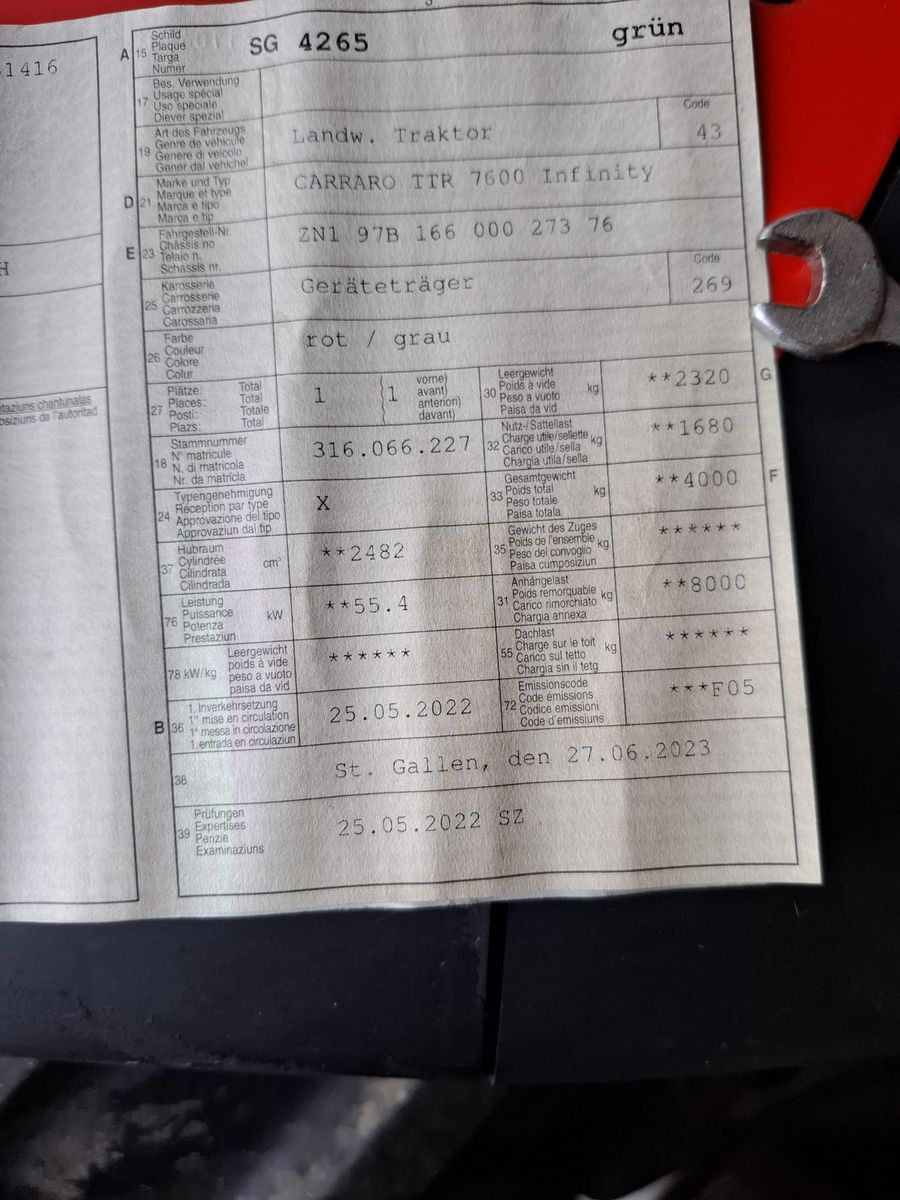 1416
H
taziuns chantunalas
osiziuns de l'autoritad
A 15 Schild
Plaque
Targa
Numer
SG 4265 grün
17 Bes. Verwendung
Usage spécial
Uso speciale
Diever spezial
19 Art des Fahrzeugs
Genre de véhicule
Genere di veicolo
Gener dal vehichel
Landw. Traktor
Code
43
D 21 Marke und Typ
Marque et type
Marca e tipo
Marca e tip
CARRARO TTR 7600 Infinity
E 23 Fahrgestell-Nr.
Châssis no
Telaio n.
Schassis nr.
ZN1 97B 166 000 273 76
25 Karosserie
Carrosserie
Carrozzeria
Carossaria
Geräteträger
Code
269
26 Farbe
Couleur
Colore
Colur
rot / grau
27 Plätze: Total
Places: Total
Posti: Totale
Plazs: Total
1 (1 vorne)
avant)
anteriori)
davant)
30 Leergewicht
Poids à vide kg
Peso a vuoto
Paisa da vid
**2320 G
18 Stammnummer
N° matricule
N. di matricola
Nr. da matricla
316.066.227
32 Nutz-/Sattellast
Charge utile/sellette kg
Carico utile/sella
Chargia utila/sella
**1680
24 Typengenehmigung
Réception par type
Approvazione del tipo
Approvaziun dal tip
X
33 Gesamtgewicht
Poids total kg
Peso totale
Paisa totala
**4000 F
37 Hubraum
Cylindrée cm³
Cilindrata
Cilindrada
**2482
35 Gewicht des Zuges
Poids de l'ensemble kg
Peso del convoglio
Paisa cumposiziun
******
76 Leistung
Puissance kW
Potenza
Prestaziun
**55.4
31 Anhängelast
Poids remorquable kg
Carico rimorchiato
Chargia annexa
**8000
78 kW/kg Leergewicht
poids à vide
peso a vuoto
paisa da vid
******
55 Dachlast
Charge sur le toit kg
Carico sul tetto
Chargia sin il tetg
******
B 36 1. Inverkehrsetzung
1re mise en circulation
1a messa in circolazione
1. entrada en circulaziun
25.05.2022
72 Emissionscode
Code émissions
Codice emissioni
Code d'emissiuns
***F05
38 St. Gallen, den 27.06.2023
39 Prüfungen
Expertises
Perizie
Examinaziuns
25.05.2022 SZ